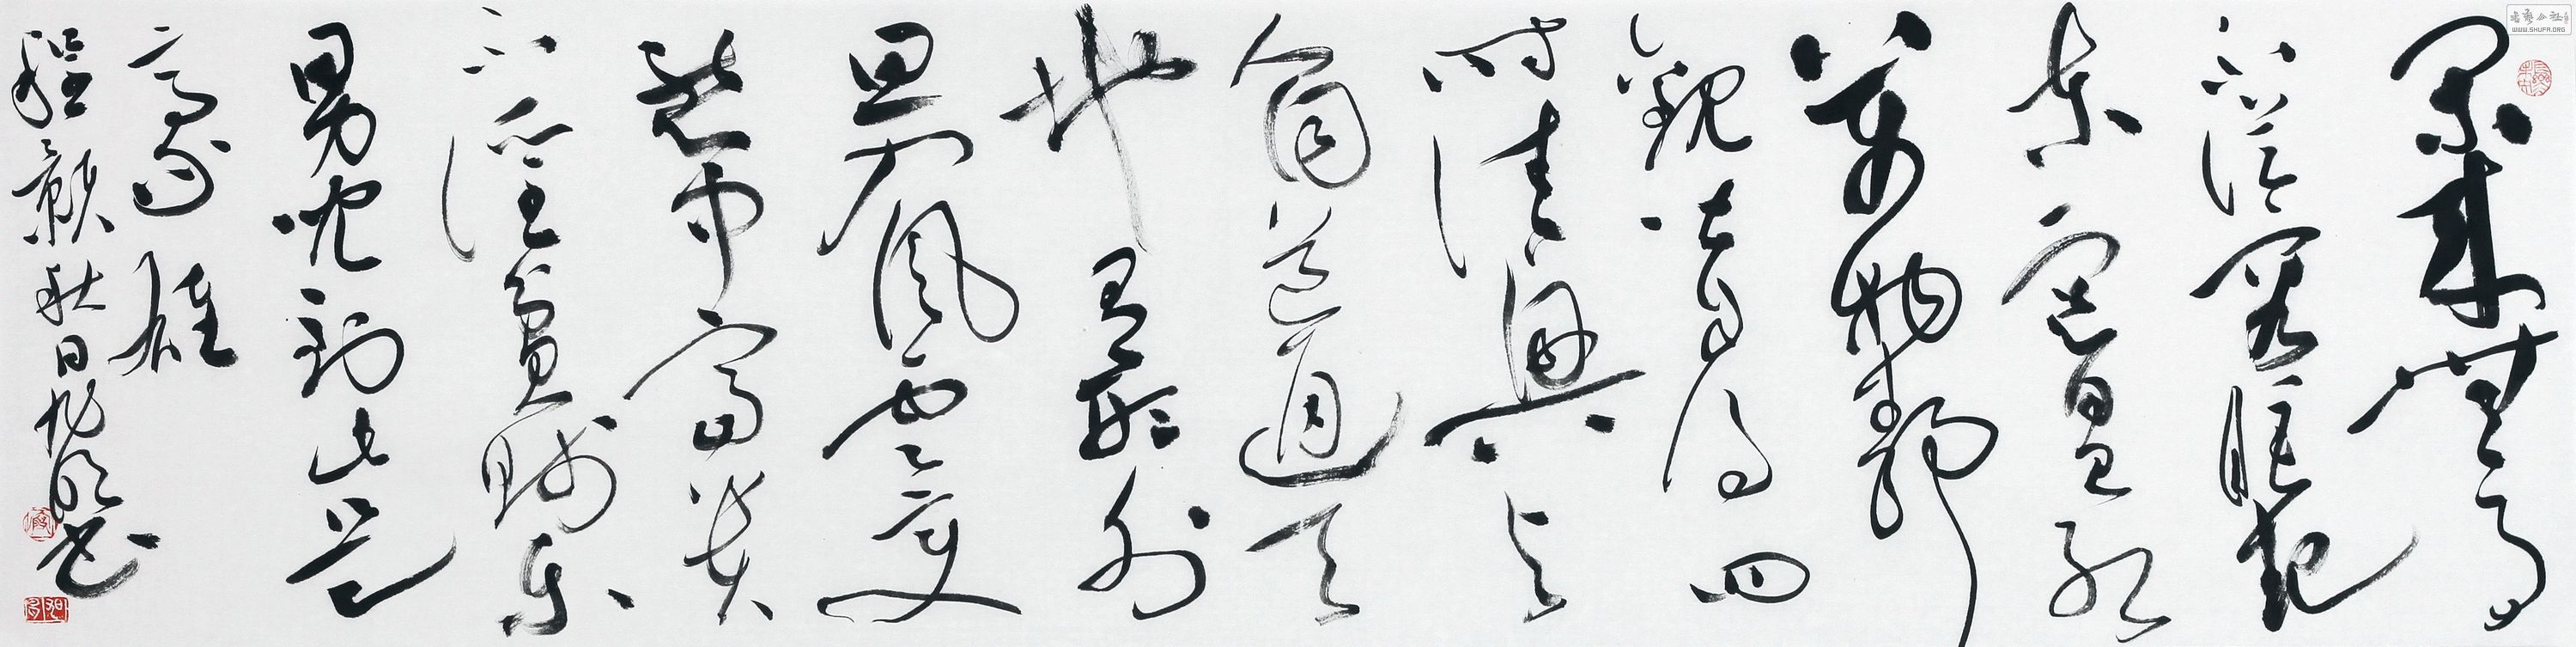 閑来無事
不從容睡覺
東窗日已紅
萬物静
觀皆自得四
時佳興與
人同道通天
地有形外
思入風雲變
態中富貴
不淫貧賤樂
男兒到此是
豪雄
程顥秋日
WWW.SHUFA.ORG